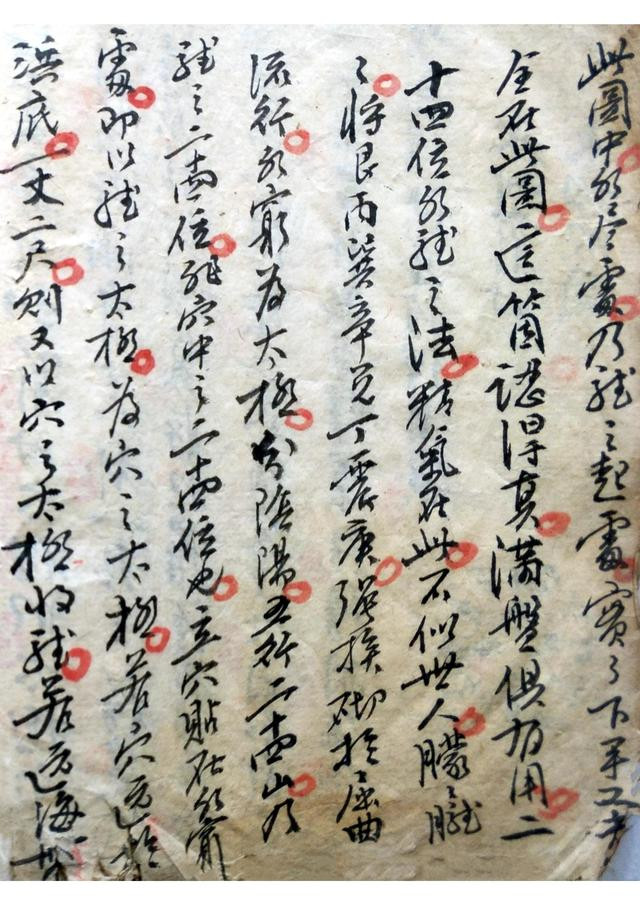 此圖中水尽處乃龍之起處實之下手工夫
全在此圖這箇認得真滿盤俱有用二
十四位水龍之法精氣在此不似世人朦朧
之將艮丙巽辛兌丁震庚強挨砌於屈曲
流行水窮為太極分陰陽五行二十四山乃
龍之二十四位非穴中之二十四位也立穴貼在水窮
處即以龍之太極為穴之太極若穴遠於
浜底一丈二尺則又以穴之太極收龍若近海